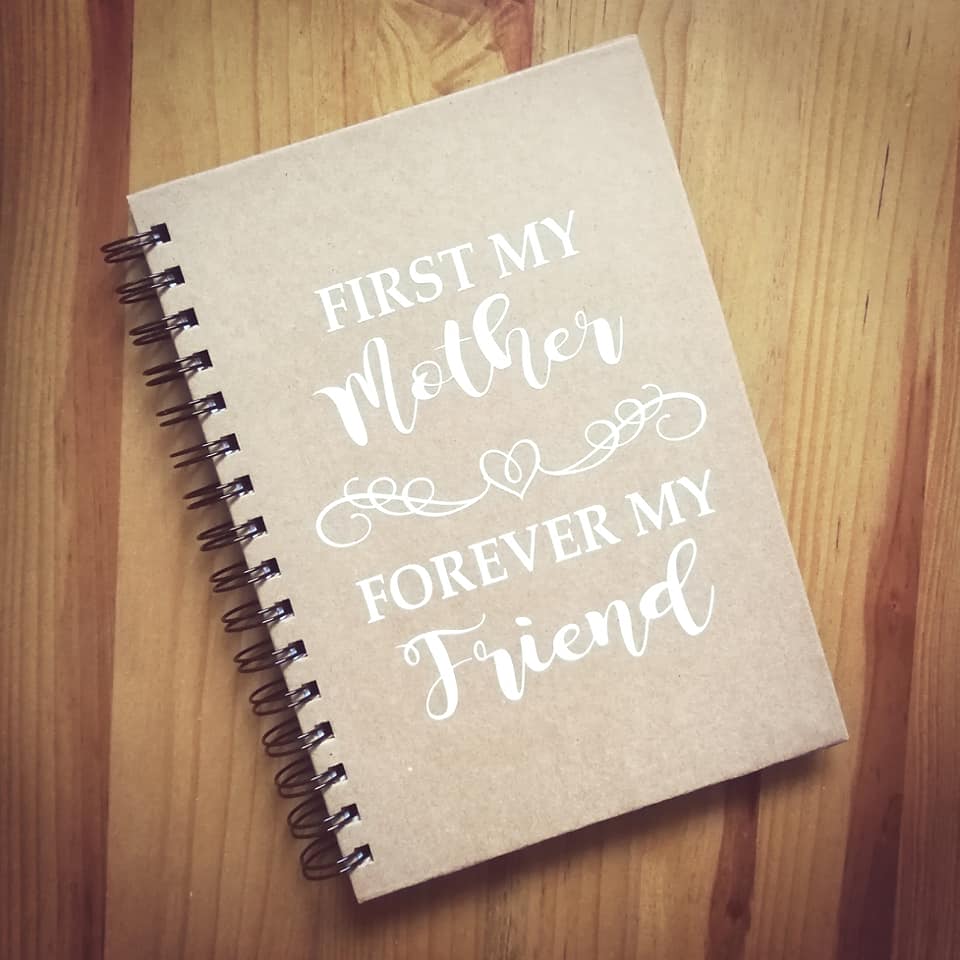 FIRST MY
Mother
FOREVER MY
Friend